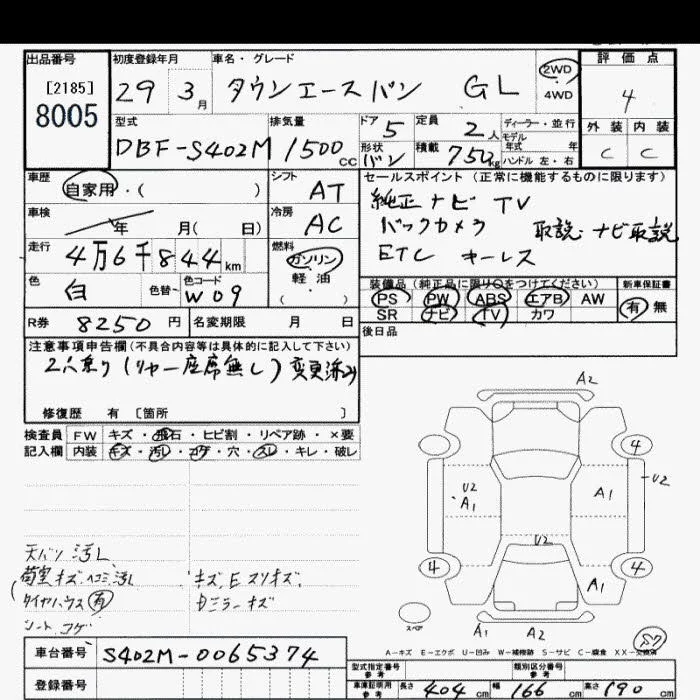 出品番号
[2185]
8005
初度登録年月
29 3月
車名・グレード
タウンエースバン GL
2WD
4WD
評価点
4
外装 内装
C C
型式
DBF-S402M
排気量
1500 cc
ドア 5
形状 バン
定員 2人
積載 750kg
ディーラー・並行
モデル年式 年
ハンドル 左・右
車歴
自家用・( )
シフト
AT
車検
年 月( 日)
冷房
AC
走行
4万6千844km
燃料
ガソリン
軽油
( )
色
白
色替
色コード
W09
R券 8250円
名変期限 月 日
セールスポイント(正常に機能するものに限ります)
純正ナビ TV
バックカメラ 取説.ナビ取説
ETC キーレス
装備品(純正品に限り○をつけてください)
PS PW ABS エアB AW
SR ナビ TV カワ
新車保証書
有 無
後日品
注意事項申告欄(不具合内容等は具体的に記入して下さい)
2人乗り(リヤー座席無し)変更済み
修復歴 有 [箇所 ]
検査員記入欄
FW キズ・飛石・ヒビ割・リペア跡・×要
内装 キズ・汚レ・コゲ・穴・スレ・キレ・破レ
天バリ汚レ
荷室キズ ヘコミ汚レ
タイヤハウス(有)
シートコゲ
キズEスリキズ
Dミラーキズ
A2
4
U2
A1
A1
U2
U2
4
4
A1
スペア
A1
A2
S7
A-キズ E-エクボ U-凹み W-補修跡 S-サビ C-腐食 XX-交換済
車台番号 S402M-0065374
登録番号
型式指定番号 参考
類別区分番号 参考
車庫証明用 参考
長さ 404 cm
幅 166 cm
高さ 190 cm